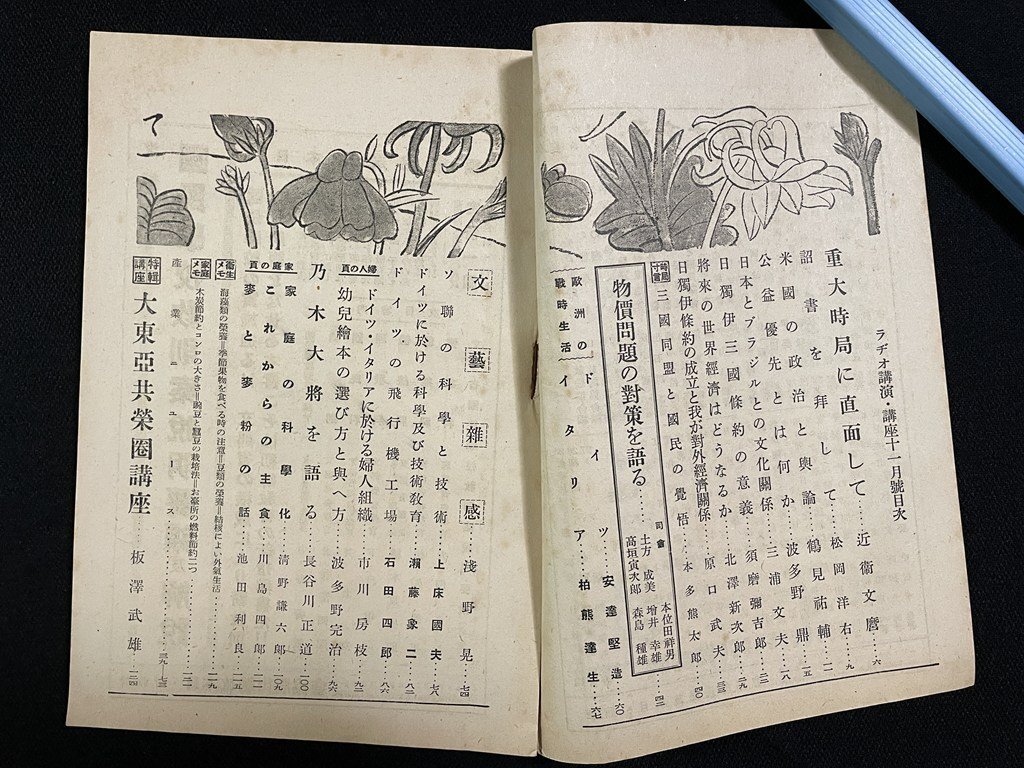 ラヂオ講演・講座十一月號目次
重大時局に直面して……近衞文麿…六
詔書を拜して……松岡洋右…九
米國の政治と輿論……鶴見祐輔…一一
公益優先とは何か……波多野鼎…一五
日本とブラジルとの文化關係……三浦文夫…一八
日獨伊三國條約の意義……須磨彌吉郎…二二
將來の世界經濟はどうなるか……北澤新次郎…二九
日獨伊條約の成立と我が對外經濟關係……原口武夫…三三
時局寸言
三國同盟と國民の覺悟……本多熊太郎…四〇
物價問題の對策を語る……
司會
本位田祥男
土方成美
増井幸雄
高垣寅次郎
森島種雄
…四二
歐洲の戰時生活
ドイツ……安達堅造…六〇
イタリア……柏熊達生…六七
文藝雜感……淺野晃…七四
ソ聯の科學と技術……上床國夫…七八
ドイツに於ける科學及び技術敎育……瀬藤象二…八二
ドイツの飛行機工場……石田四郎…八六
婦人の頁
ドイツ・イタリアに於ける婦人組織……市川房枝…九二
幼兒繪本の選び方と與へ方……波多野完治…九六
乃木大將を語る……長谷川正道…一〇〇
家庭の頁
家庭の科學化……淸野謙六郎…一〇九
これからの主食……川島四郎…一一一
麥と麥粉の話……池田利良…一一五
衞生メモ
海藻類の榮養＝季節果物を食べる時の注意＝豆類の榮養＝結核によい外氣生活……一一九
家庭メモ
木炭節約とコンロの大きさ＝豌豆と蠶豆の栽培法＝お臺所の燃料節約二つ……一二一
産業ニュース……三九・七三
特輯講座
大東亞共榮圈講座……板澤武雄…一二四